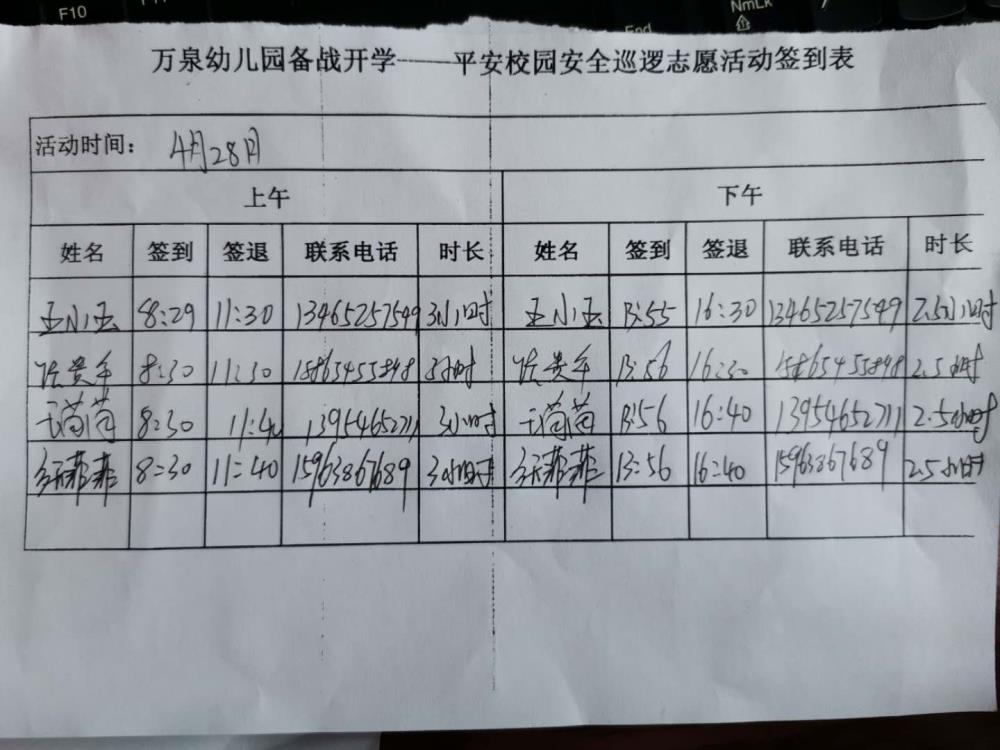 F10
End
NmLk
万泉幼儿园备战开学——平安校园安全巡逻志愿活动签到表
活动时间: 4月28日
上午 下午
姓名 签到 签退 联系电话 时长 姓名 签到 签退 联系电话 时长
王小玉 8:29 11:30 13465257549 3小时 王小玉 13:55 16:30 13465257549 2.5小时
张贵年 8:30 11:30 15865455848 3小时 张贵年 13:56 16:30 15865455848 2.5小时
于苗苗 8:30 11:40 13954652711 3小时 于苗苗 13:56 16:40 13954652711 2.5小时
菲菲 8:30 11:40 15963867689 3小时 菲菲 13:56 16:40 15963867689 2.5小时